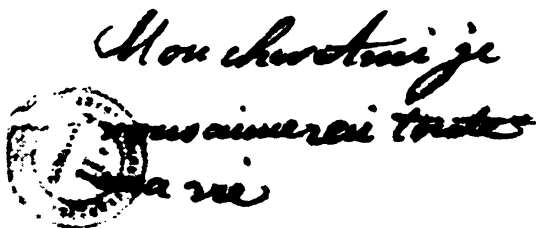 Mon cher Ami je
vous aimerai toute
ma vie